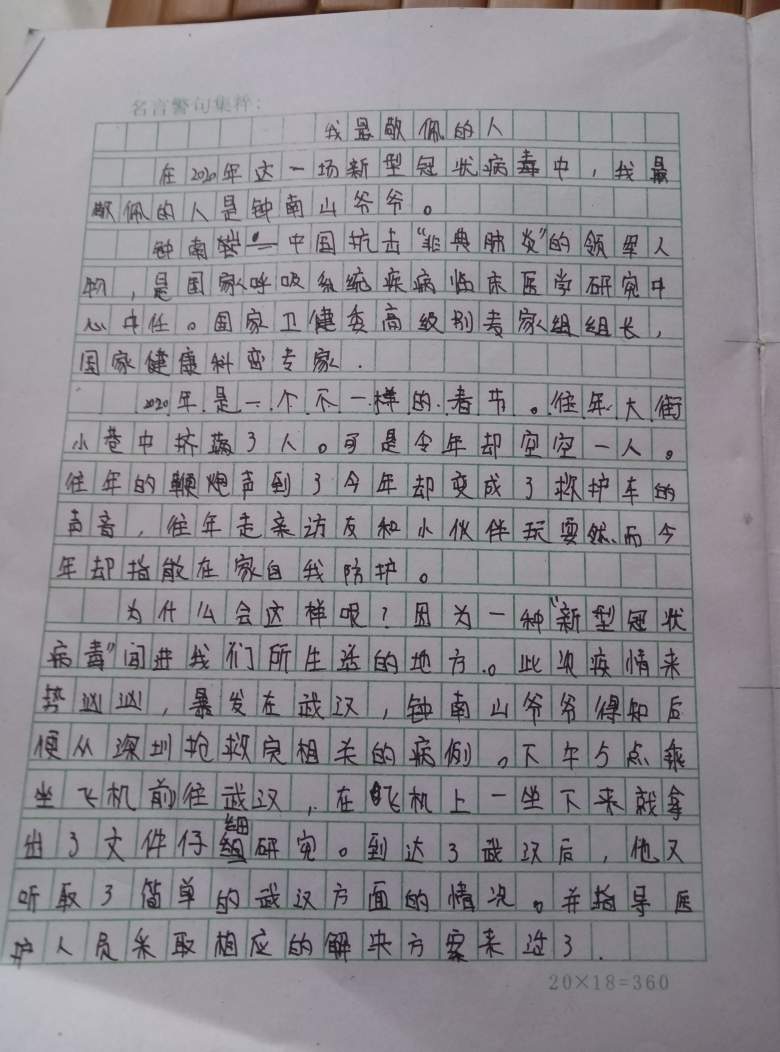 名言警句集粹:
我最敬佩的人
在2020年这一场新型冠状病毒中，我最
敬佩的人是钟南山爷爷。
钟南 中国抗击“非典肺炎”的领军人
物，是国家呼吸系统疾病临床医学研究中
心中任。国家卫健委高级别专家组组长，
国家健康科变专家.
2020年是一个不一样的春节。往年大街
小巷中挤满了人。可是今年却空空一人。
往年的鞭炮声到了今年却变成了救护车的
声音，往年走亲访友和小伙伴玩耍然而今
年却指能在家自我防护。
为什么会这样呢？因为一种“新型冠状
病毒”闯进我们所生活的地方。此次疾情来
势凶凶，暴发在武汉，钟南山爷爷得知后
便从深圳抢救完相关的病例。下午5点乘
坐飞机前往武汉，在飞机上一坐下来就拿
出了文件仔细研究。到达了武汉后，他又
听取了简单的武汉方面的情况。并指导医
护人员采取相应的解决方案来过了.
20×18=360